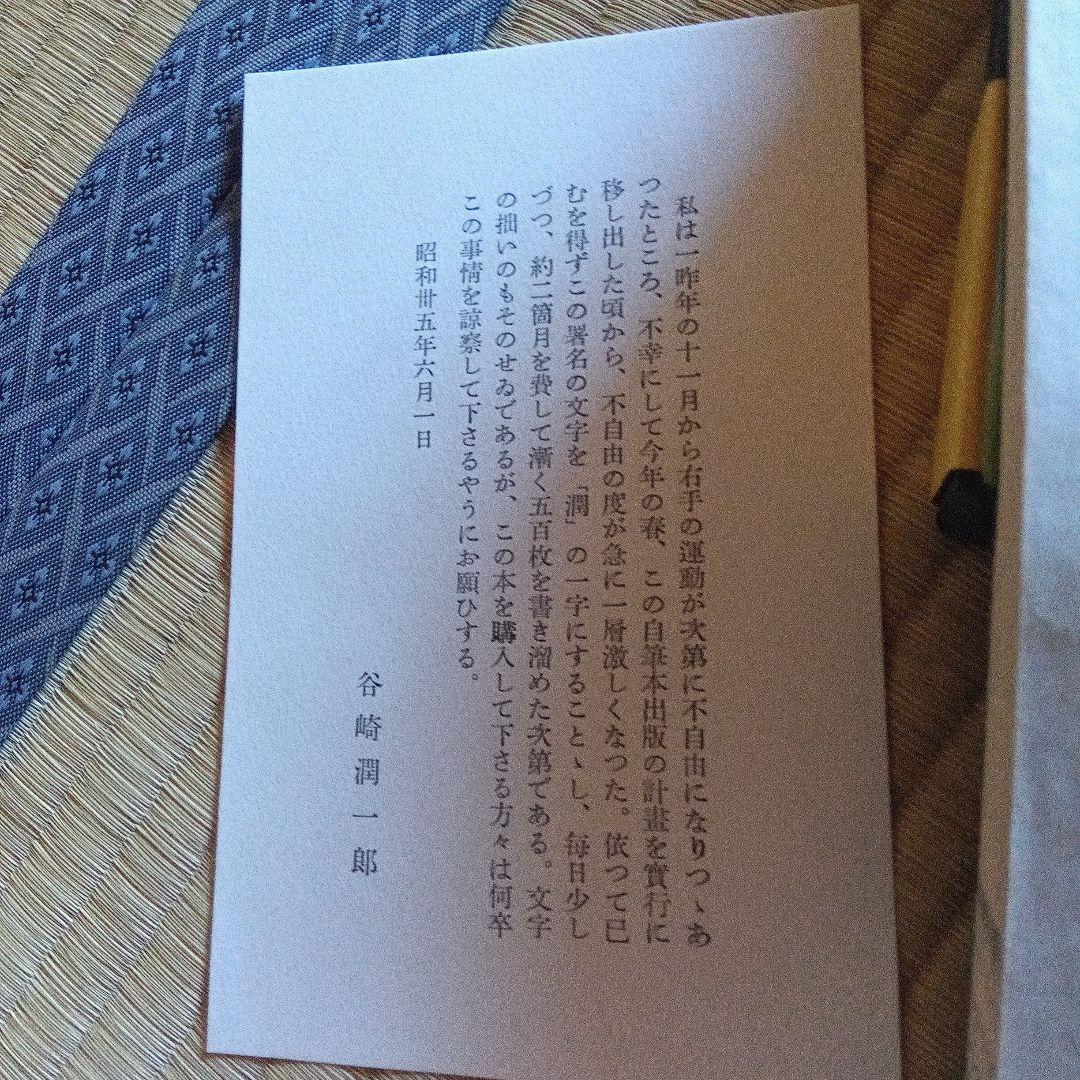 私は一昨年の十一月から右手の運動が次第に不自由になりつゝあ
つたところ、不幸にして今年の春、この自筆本出版の計畫を實行に
移し出した頃から、不自由の度が急に一層激しくなつた。依つて已
むを得ずこの署名の文字を「潤」の一字にすることゝし、毎日少し
づつ、約二箇月を費して漸く五百枚を書き溜めた次第である。文字
の拙いのもそのせゐであるが、この本を購入して下さる方々は何卒
この事情を諒察して下さるやうにお願ひする。
昭和卅五年六月一日
谷崎潤一郎